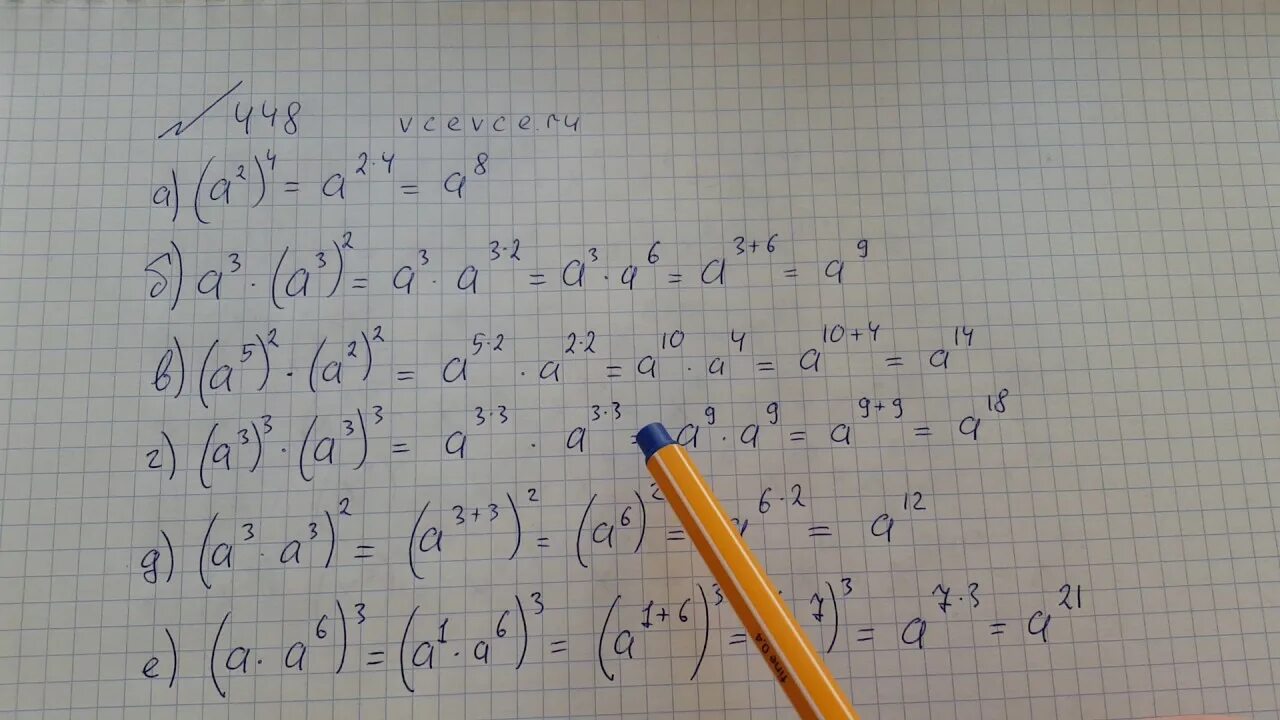 № 448 vcevce.ru
а) (a²)⁴ = a^{2·4} = a⁸
б) a³ · (a³)² = a³ · a^{3·2} = a³ · a⁶ = a^{3+6} = a⁹
в) (a⁵)² · (a²)² = a^{5·2} · a^{2·2} = a^{10} · a⁴ = a^{10+4} = a^{14}
г) (a³)³ · (a³)³ = a^{3·3} · a^{3·3} = a⁹ · a⁹ = a^{9+9} = a^{18}
д) (a³ · a³)² = (a^{3+3})² = (a⁶)² = a^{6·2} = a^{12}
е) (a · a⁶)³ = (a¹ · a⁶)³ = (a^{1+6})³ = ⁷)³ = a^{7·3} = a^{21}
fine 0,4